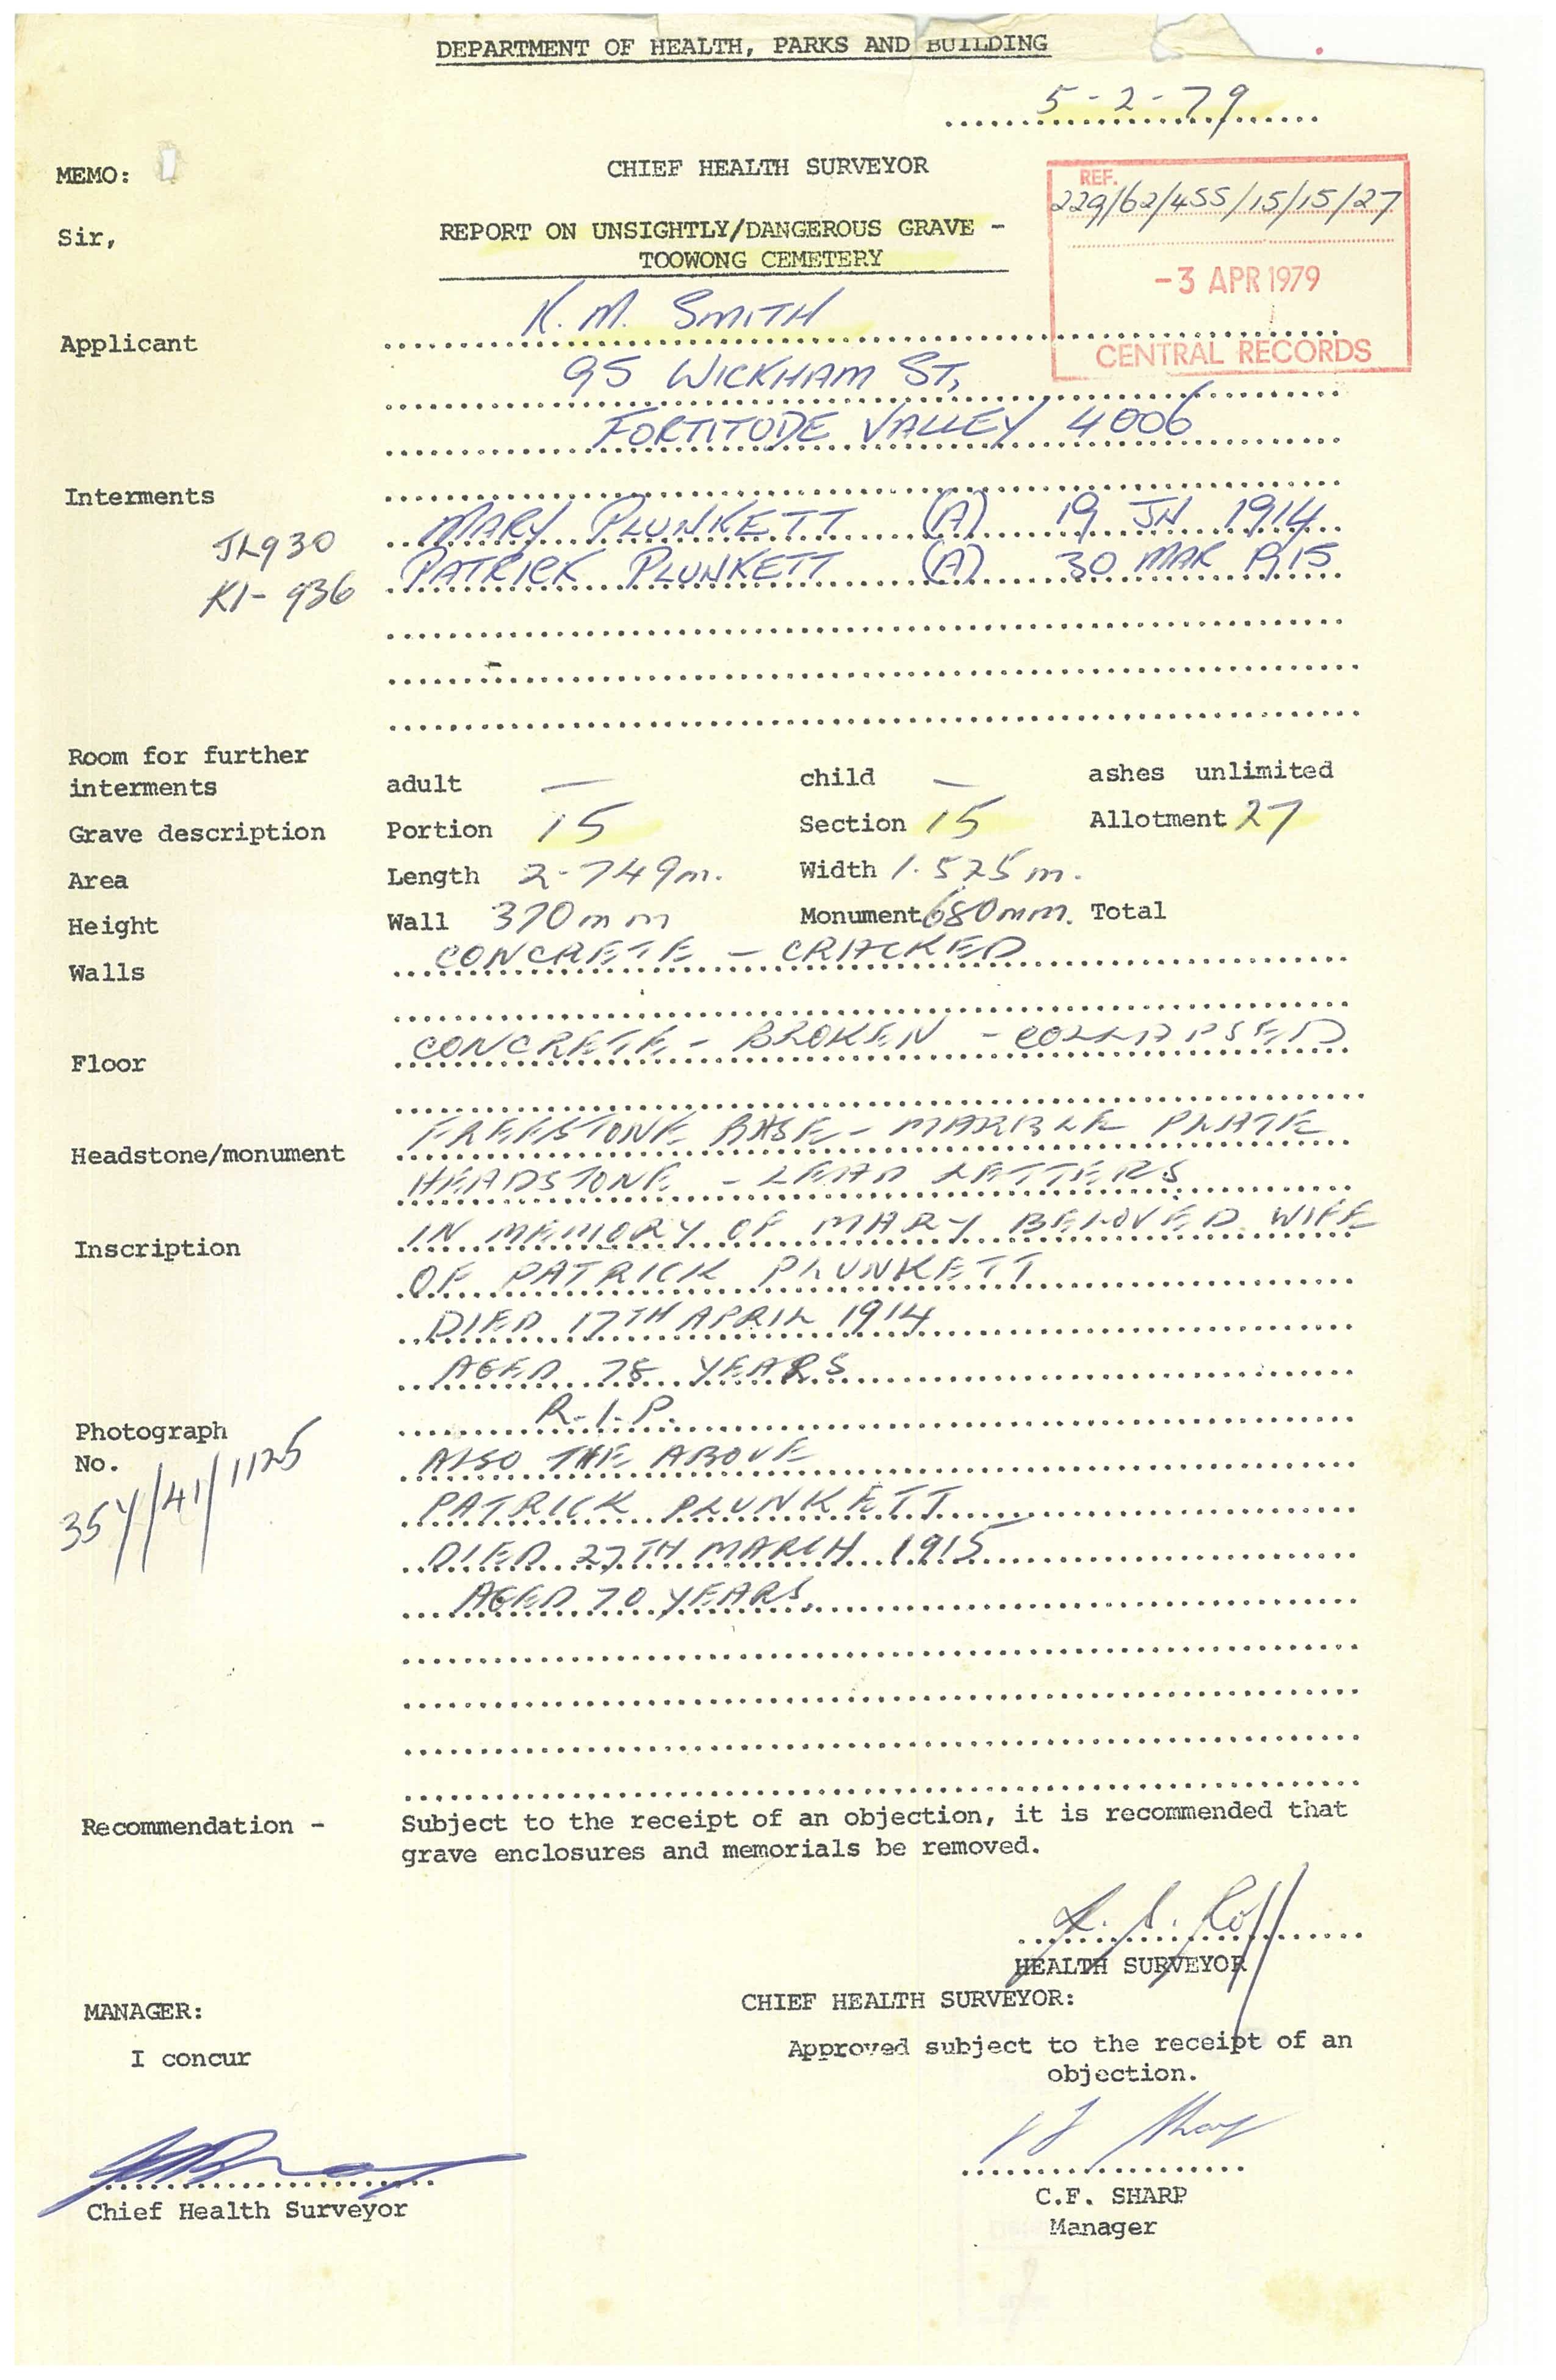 DEPARTMENT OF HEALTH, PARKS AND BUILDING
5-2-79
MEMO:
CHIEF HEALTH SURVEYOR
REF.
229/62/455/15/15/27
Sir,
REPORT ON UNSIGHTLY/DANGEROUS GRAVE -
TOOWONG CEMETERY
-3 APR 1979
CENTRAL RECORDS
Applicant K. M. SMITH
95 WICKHAM ST,
FORTITUDE VALLEY 4006
Interments
JL930 MARY PLUNKETT (A) 19 JN 1914
K1-936 PATRICK PLUNKETT (A) 30 MAR 1915
Room for further
interments adult — child — ashes unlimited
Grave description Portion 15 Section 15 Allotment 27
Area Length 2.749m. Width 1.525m.
Height Wall 370mm Monument 680mm. Total
Walls CONCRETE - CRACKED
Floor CONCRETE - BROKEN - COLLAPSED
Headstone/monument FREESTONE BASE - MARBLE PLATE
HEADSTONE - LEAD LETTERS
Inscription IN MEMORY OF MARY BELOVED WIFE
OF PATRICK PLUNKETT
DIED 17TH APRIL 1914
AGED 78 YEARS
R.I.P.
Photograph
No.
354/41/1125
ALSO THE ABOVE
PATRICK PLUNKETT
DIED 27TH MARCH 1915
AGED 70 YEARS.
Recommendation - Subject to the receipt of an objection, it is recommended that
grave enclosures and memorials be removed.
HEALTH SURVEYOR
MANAGER:
I concur
Chief Health Surveyor
CHIEF HEALTH SURVEYOR:
Approved subject to the receipt of an
objection.
C.F. SHARP
Manager